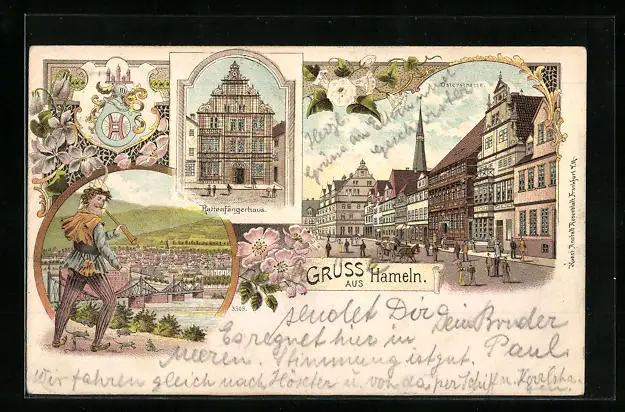 Rattenfängerhaus.
Osterstrasse.
Herzl.
Grüsse an
GRUSS
AUS
Hameln.
3509.
sendet Dir
Dein Bruder
Es regnet hier in
Paul.
Stimmung ist gut.
Wir fahren gleich nach Höxter u. von da per Schiff n.